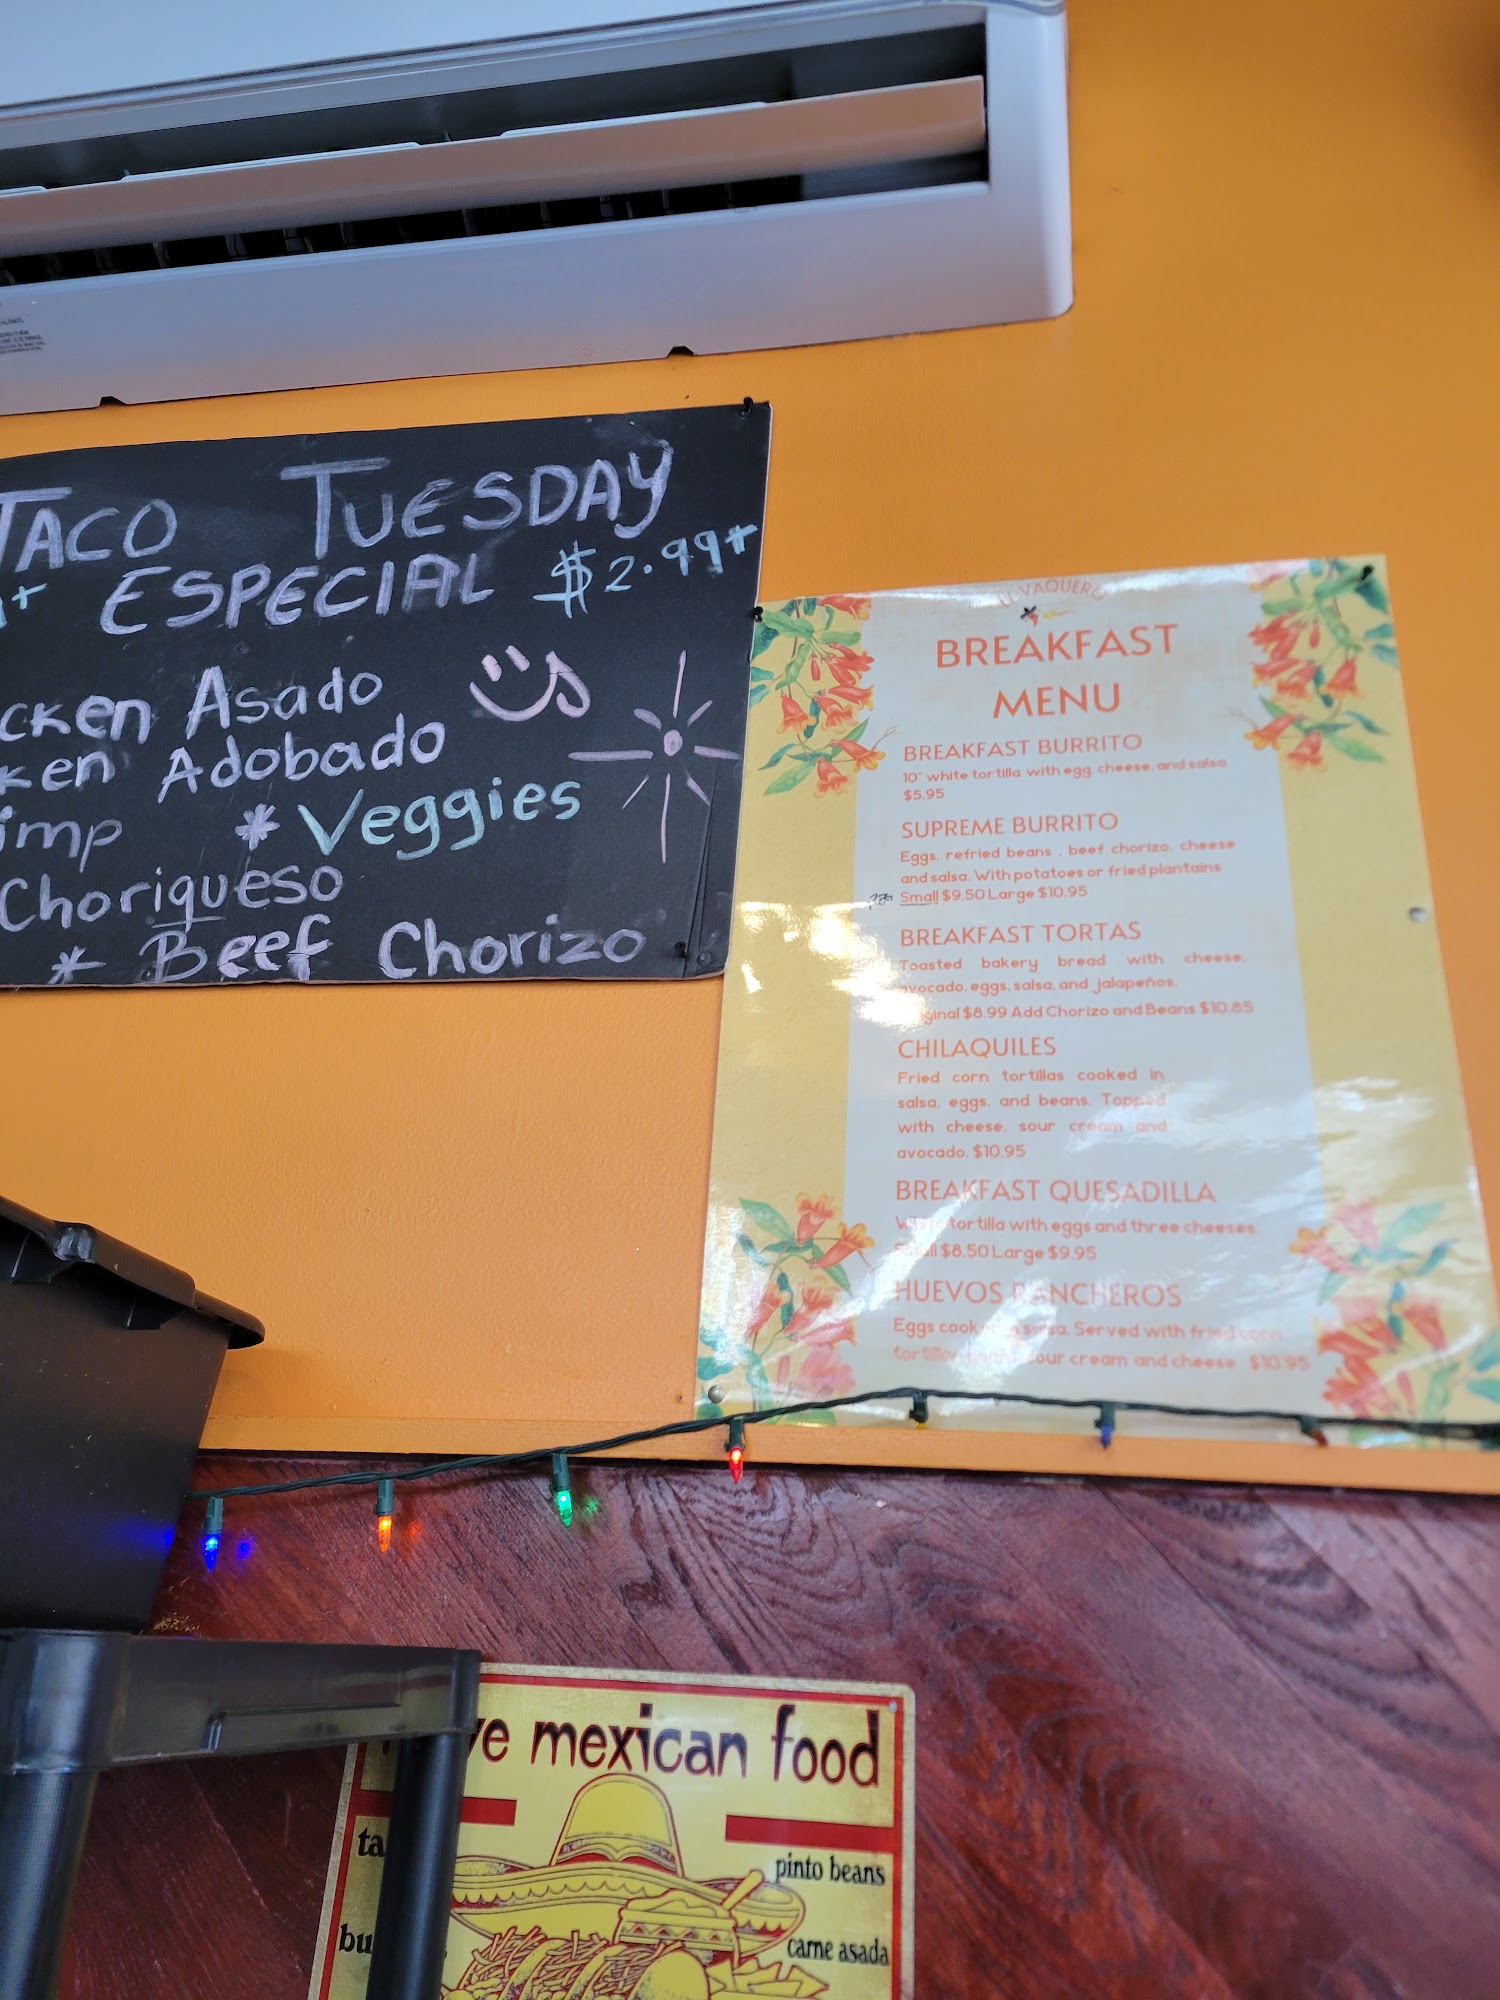 TACO TUESDAY
ESPECIAL $2.99*
Asado
Adobado
* Veggies
Choriqueso
* Beef Chorizo
EL VAQUERO
BREAKFAST
MENU
BREAKFAST BURRITO
10" white tortilla with egg, cheese, and salsa
$5.95
SUPREME BURRITO
Eggs, refried beans , beef chorizo, cheese
and salsa. With potatoes or fried plantains
Small $9.50 Large $10.95
BREAKFAST TORTAS
Toasted bakery bread with cheese,
avocado, eggs, salsa, and jalapeños.
Original $8.99 Add Chorizo and Beans $10.85
CHILAQUILES
Fried corn tortillas cooked in
salsa, eggs, and beans. Topped
with cheese, sour cream and
avocado. $10.95
BREAKFAST QUESADILLA
White tortilla with eggs and three cheeses.
Small $8.50 Large $9.95
HUEVOS RANCHEROS
Eggs cooked in salsa. Served with fried corn
sour cream and cheese $10.95
mexican food
pinto beans
carne asada